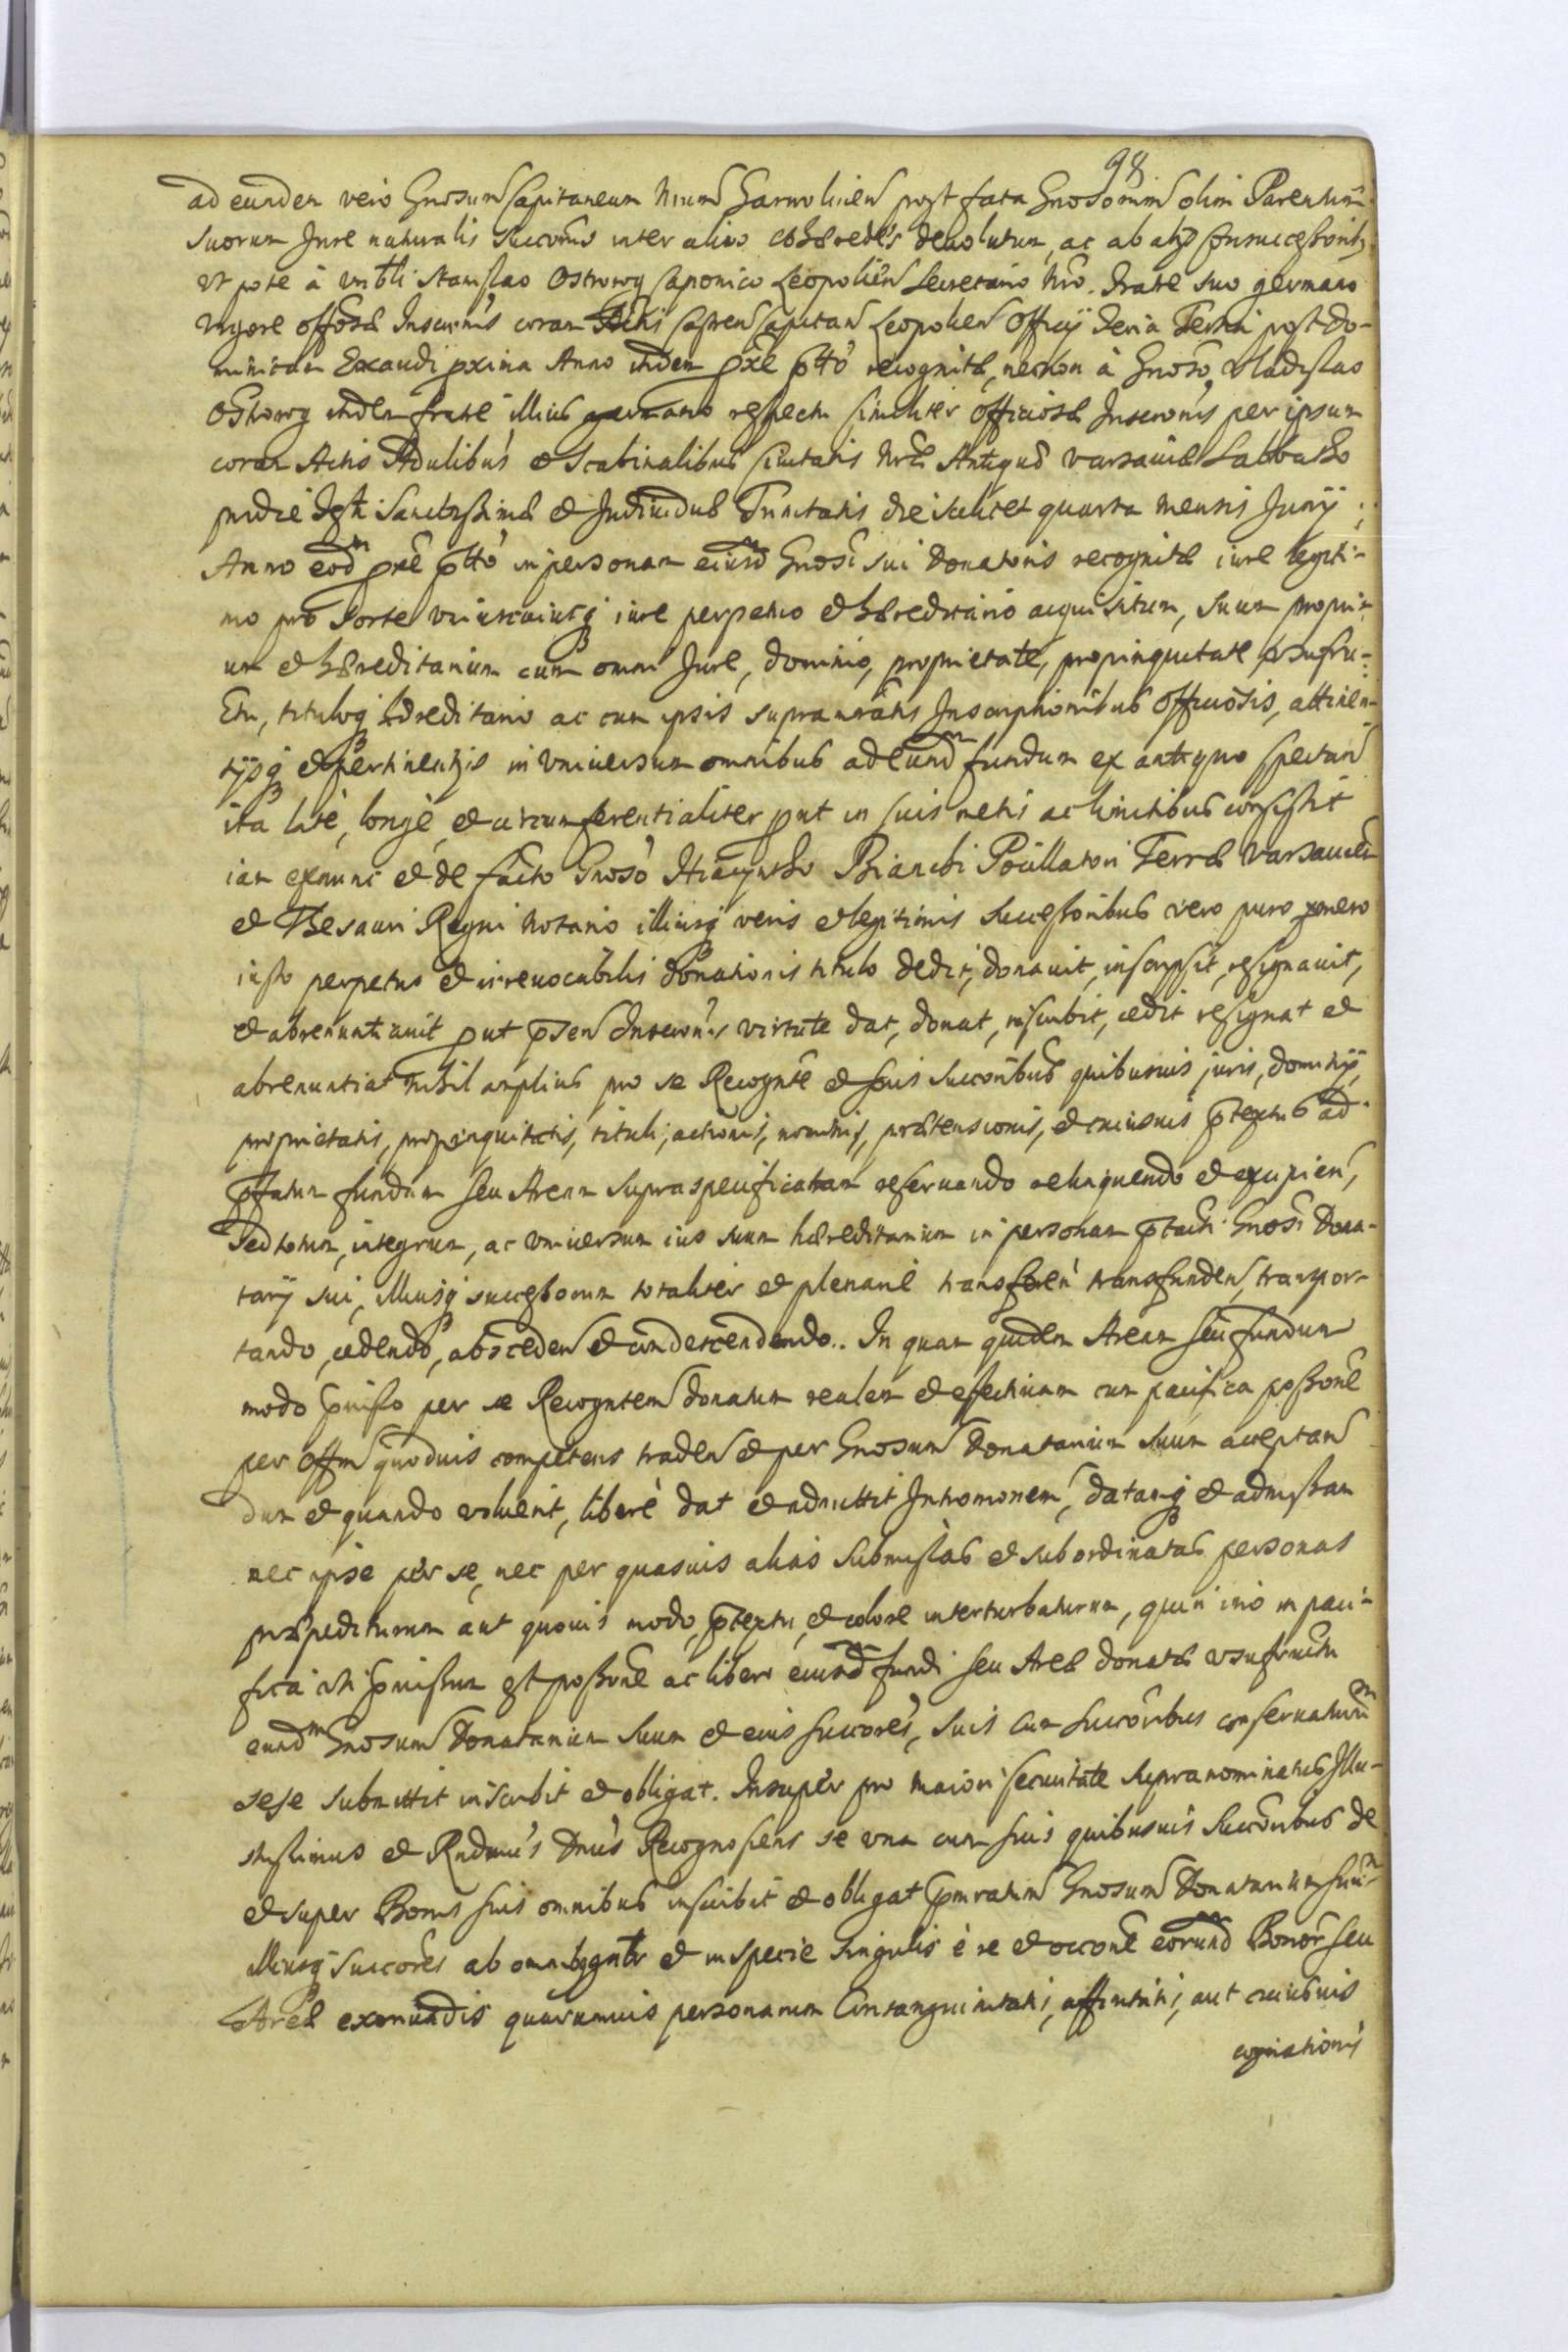 98
ad eundem vero Gnosum Capitaneum Nrum Garwolinen post fata Gnosorum olim Parentum
suorum Jure naturalis succonis inter alios cohæredes devolutum, ac ab alijs Consuccessorib9
ut pote à Vnbli Stanislao Ostrorog Canonico Leopolien Secretario Nro. fratre suo germano
vigore offosæ Inscrnis coram Actis Castren Capitan Leopolien Officij feria Tertia post do-
minicam Exaudi pxima Anno itidem pñte ptto recognitæ, necnon à Gnoso Vladislao
Ostrorog itidem fratre illius germano respectu similiter officiosæ Inscronis per ipsum
coram Actis Adulibus et Scabinalibus Ciuitatis Nræ Antiquæ Varsauiæ Sabbatho
pridie festi Sanctissimæ et Indiuiduæ Trinitatis die scilicet quarta mensis Junij
Anno eodm pñte ptto in personam eiusdm Gnosi sui Donatoris recognitæ iure legiti-
mo pro sorte uniuscuiusq iure perpetuo et hæreditario acquisitum, suum propri-
um et hæreditarium cum omni Jure, dominio, proprietate, propinquitate, usufru-
ctu, tituloq hæreditario ac cum ipsis supranratis Inscriptionibus officiosis, attinen-
tijsq et pertinentijs in vniuersum omnibus ad eundm fundum ex antiquo spectan
ita latè, longè, et circumferentialiter put in suis metis ac limitibus consistit
iam exnunc et de facto Gnoso Hiacyntho Bianchi Pocillatori Terræ Varsauien
et Thesauri Regni Notario illiusq veris et legitimis successoribus vero puro mero
iusto perpetuo et irreuocabilis donationis titulo dedit, donauit, inscripsit, resignauit,
et abrenuntiauit put psen Inscronis virtute dat, donat, inscribit, cedit resignat et
abrenuntiat nihil amplius pro se Recognte et suis succoribus quibusuis iuris, dominij,
proprietatis, propinquitatis, tituli, actionis, nominis, prætensionis, et cuiusuis ptextus ad
pfatum fundum seu Aream supraspecificatam reseruando relinquendo et excipien,
sed totum, integrum, ac vniuersum ius suum hæreditarium in personam ptacti Gnosi Dona-
tarij sui, illiusq successorum totaliter et plenarie transferen transfunden, transpor-
tando, cedendo, absceden et condescendendo. In quam quidem Aream seu fundum
modo pmisso per se Recognten donatum realem et efectiuam cum pacifica possone
per offm quoduis competens traden et per Gnosum Donatarium suum acceptan
dum et quando voluerit, liberè dat et admittit Intromonem, datamq et admissam
nec ipse per se, nec per quasuis alias submissas et subordinatas personas
præpediturum aut quouis modo, ptextu, et colore interturbaturum, quin imo in paci-
fica uti pmissum est possone ac libero eiusdm fundi seu Areæ donatæ vsufructu
eundm Gnosum Donatarium suum et eius succores, suis cum succoribus conseruaturum
sese submittit inscribit et obligat. Insuper pro maiori securitate supranominatus Illu-
strissimus et Rndmus Dnus Recognoscens se vna cum suis quibusuis succoribus de
et super Bonis suis omnibus inscribit et obligat pnratum Gnosum Donatarium suum
illiusq succores ab omnibq gnter et in specie singulis è re et occone eorundm Bonor seu
Areæ exmundis quarumuis personarum Consanguinitatis, affinitatis, aut cuiusuis
cognationis